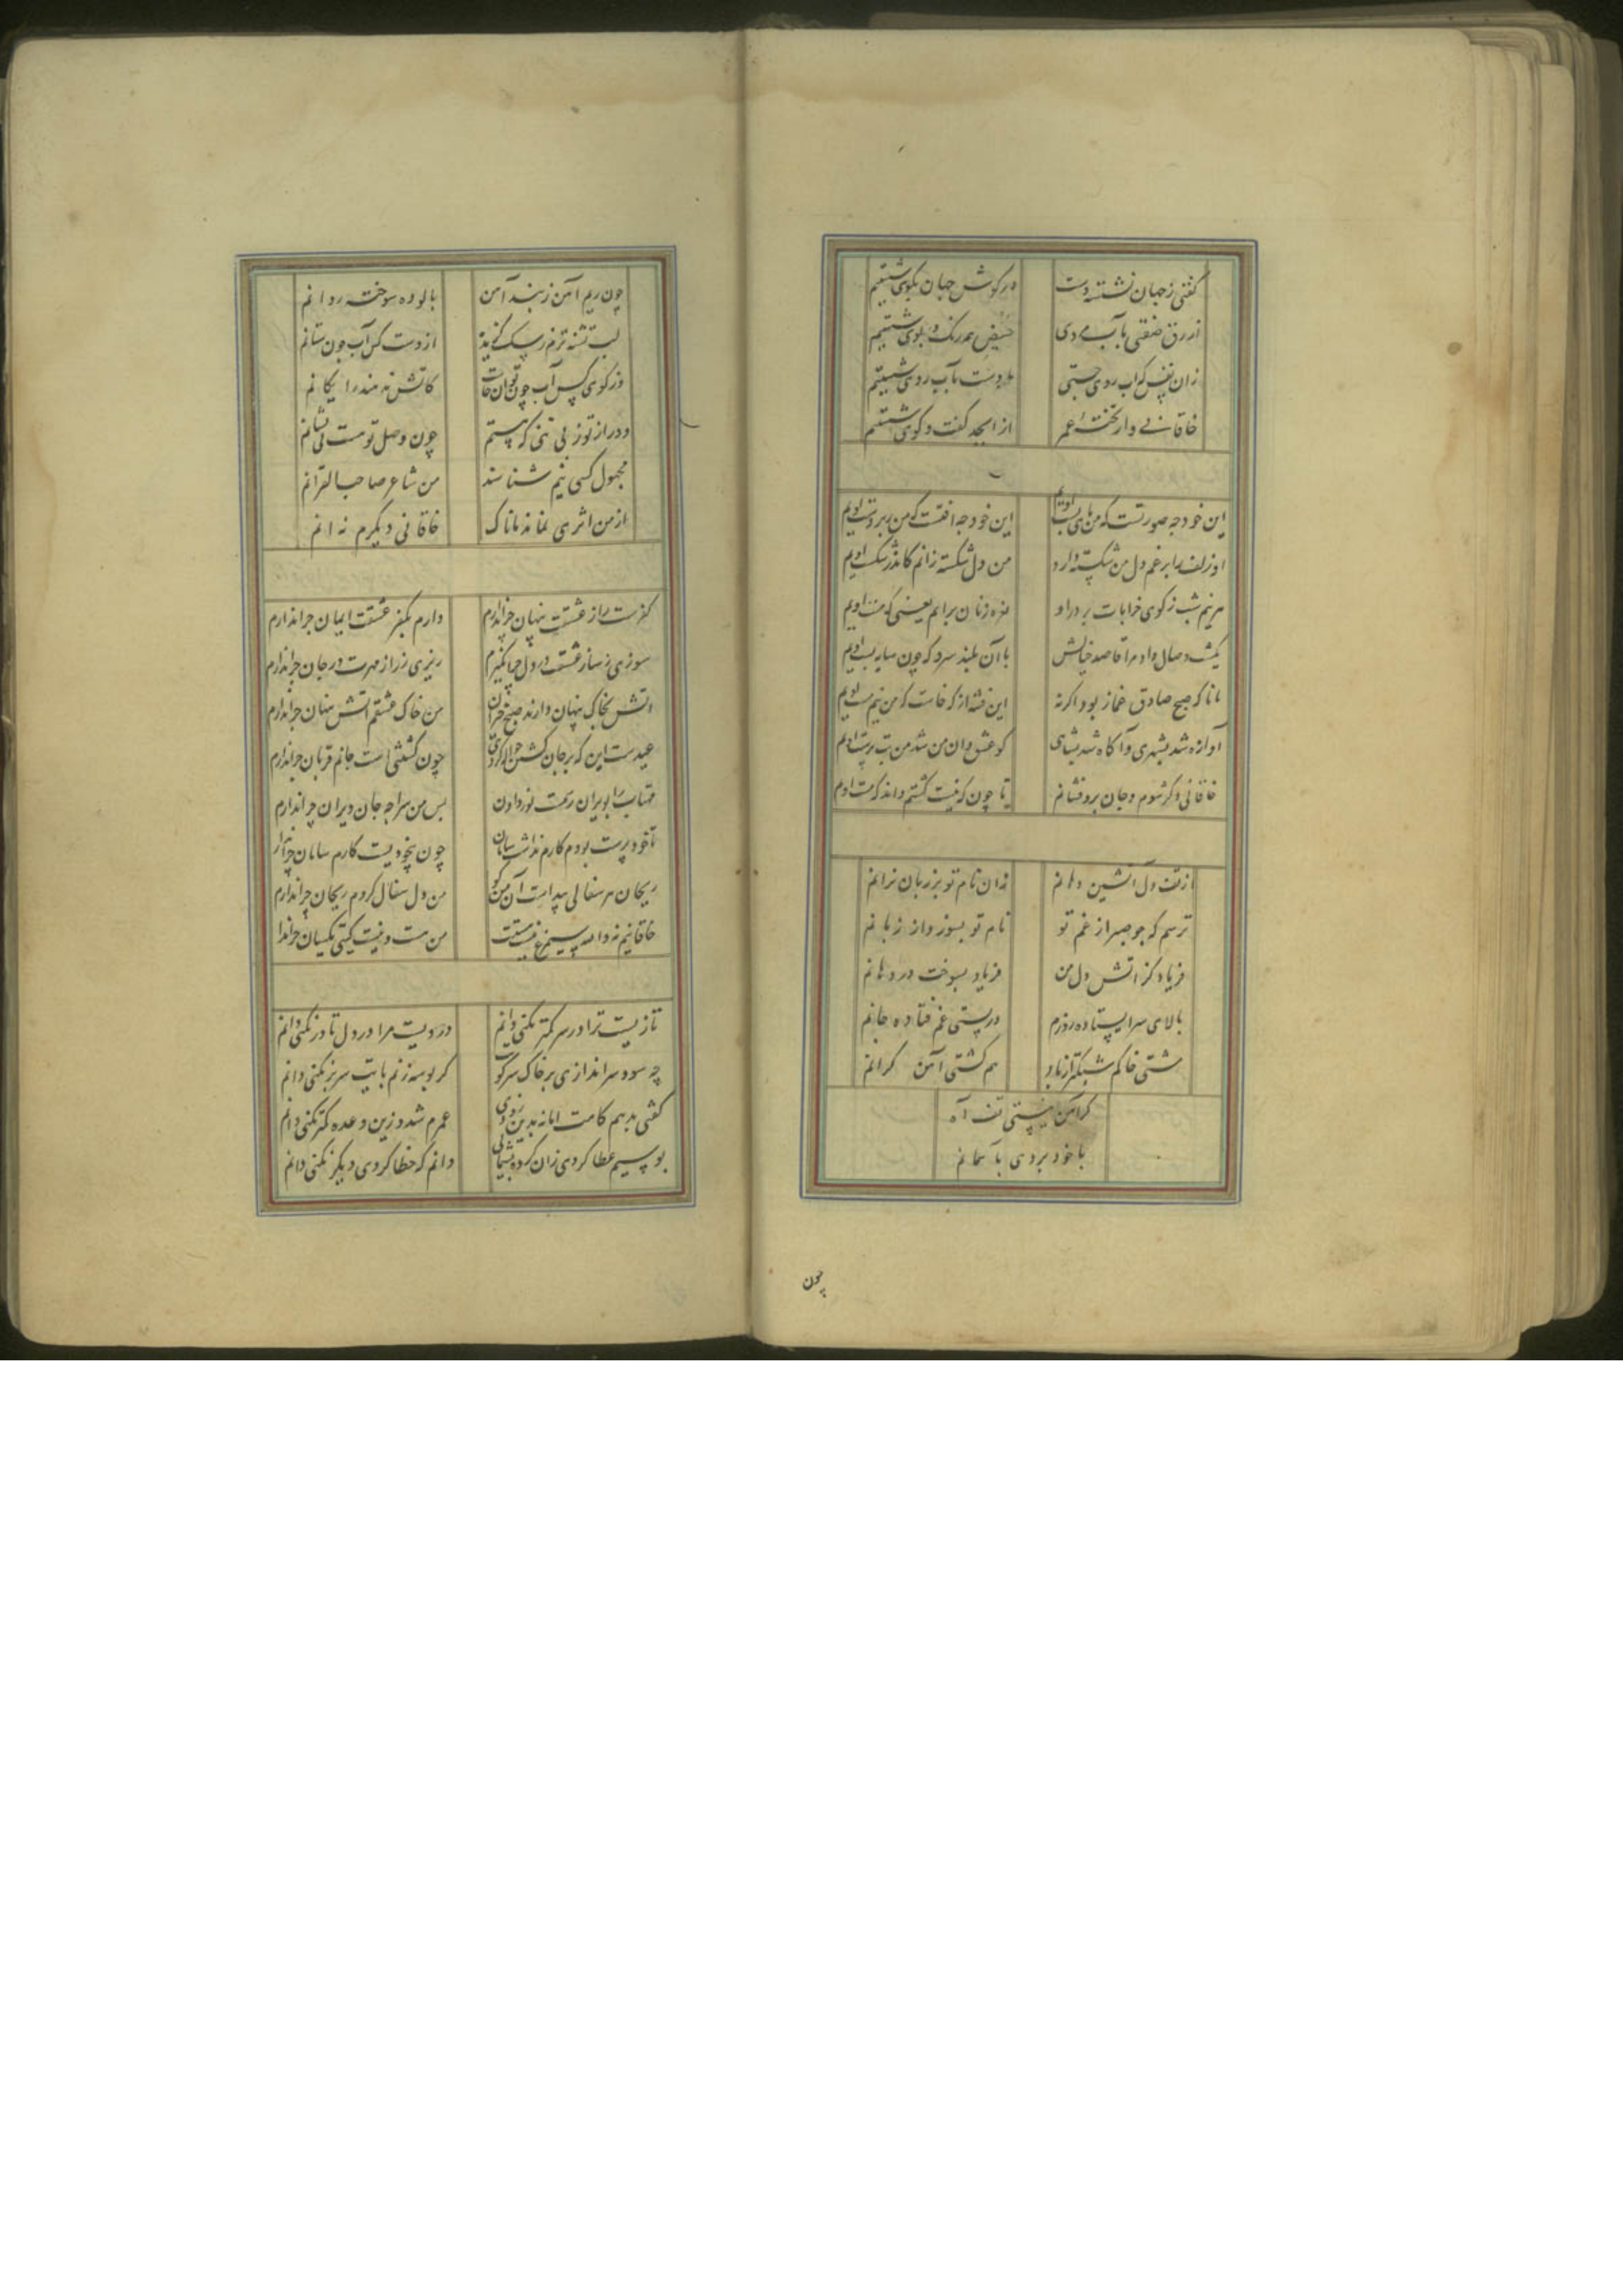 کفتی زجهان نشسته دست
در کوش جهان بکوی شستیم
ازرق
حیض همه رنک و بوی شستیم
زان نفس که آب روی جستی
دست بآب روی شستیم
خاقانی وار تخته عمر
از ابجد کفت و کوی شستیم
این خود چه صورتست که من پای بست اویم
این خود چه افتست که من زبردست اویم
او زلف را برغم دل من شکسته دارد
من دل شکسته زانم کاندر شکست اویم
هر نیم شب ز کوی خرابات بر در او
نعره زنان برایم یعنی که مست اویم
یکشب وصال داد مرا قاصد خیالش
با آن بلند سرو که چون سایه پست اویم
مانا که صبح صادق غماز بود اکرنه
این فتنه از که خاست که من نیم مست اویم
آوازه شد بشهری و آکاه شد شاهی
کو عشق دان من شد من بت پرست اویم
خاقانی دکر شوم و جان برو فشانم
تا چون که نیست کشتم داند که هست اویم
از تف دل آتشین دهانم
زان نام تو بر زبان نرانم
ترسم که چو صبر از غم تو
نام تو بسوزد از زبانم
فریاد کز آتش دل من
فریاد بسوخت در دهانم
بالای سر ایستاده روزم
در پستی غم فتاده جانم
مشتی خاکم سبکتر از باد
هم کشتی آهن کرانم
کر آهن نیستی تف آه
با خود بردی بآسمانم
چون
چون ریم آهن ز بند آهن
پالوده سوخته روانم
لب تشنه ترم ز سک کزیده
از دست کس آب چون ستانم
وز کوی کس آب چون توان خاست
کاتش ندهند رایکانم
در از تو ز بی تنی که هستم
چون وصل تو هست بی نشانم
مجهول کسی نیم شناسند
من شاعر صاحب القرانم
از من اثری نماند ماناک
خاقانی دیکرم نه آنم
کفرست راز عشقت پنهان چرا ندارم
دارم بکفر عشقت ایمان چرا ندارم
سوزی ز ساز عشقت در دل چرا نکیرم
رمزی ز راز مهرت در جان چرا ندارم
آتش بخاک پنهان دارند صبح خیزان
من خاک عشقم آتش پنهان چرا ندارم
عیدست این که بر جان کشتن حواله کردی
چون کشتنی است جانم قربان چرا ندارم
مهتاب را بویران رسمست نور دادن
بس من سراچه جان ویران چرا ندارم
تا خود پرست بودم کارم نداشت سامان
چون بیخودیست کارم سامان چرا ندارم
ریحان هر سفالی پیداست آن من کو
من دل سفال کردم ریحان چرا ندارم
خاقانیم نه والله سیمرغ نیست هستت
من هست و نیست کیتی یکسان چرا ندارم
تازیست ترا در سر کمتر نکنی دانم
دردیست مرا در دل باور نکنی دانم
چه سود سر اندازی بر خاک سر کویت
کر بوسه زنم پایت سر بر نکنی دانم
کفتی بدهم کامت اما نه بدین زودی
عمرم شد و زین وعده کمتر نکنی دانم
بوسیم عطا کردی زان کرده پشیمانی
دانم که خطا کردی دیکر نکنی دانم